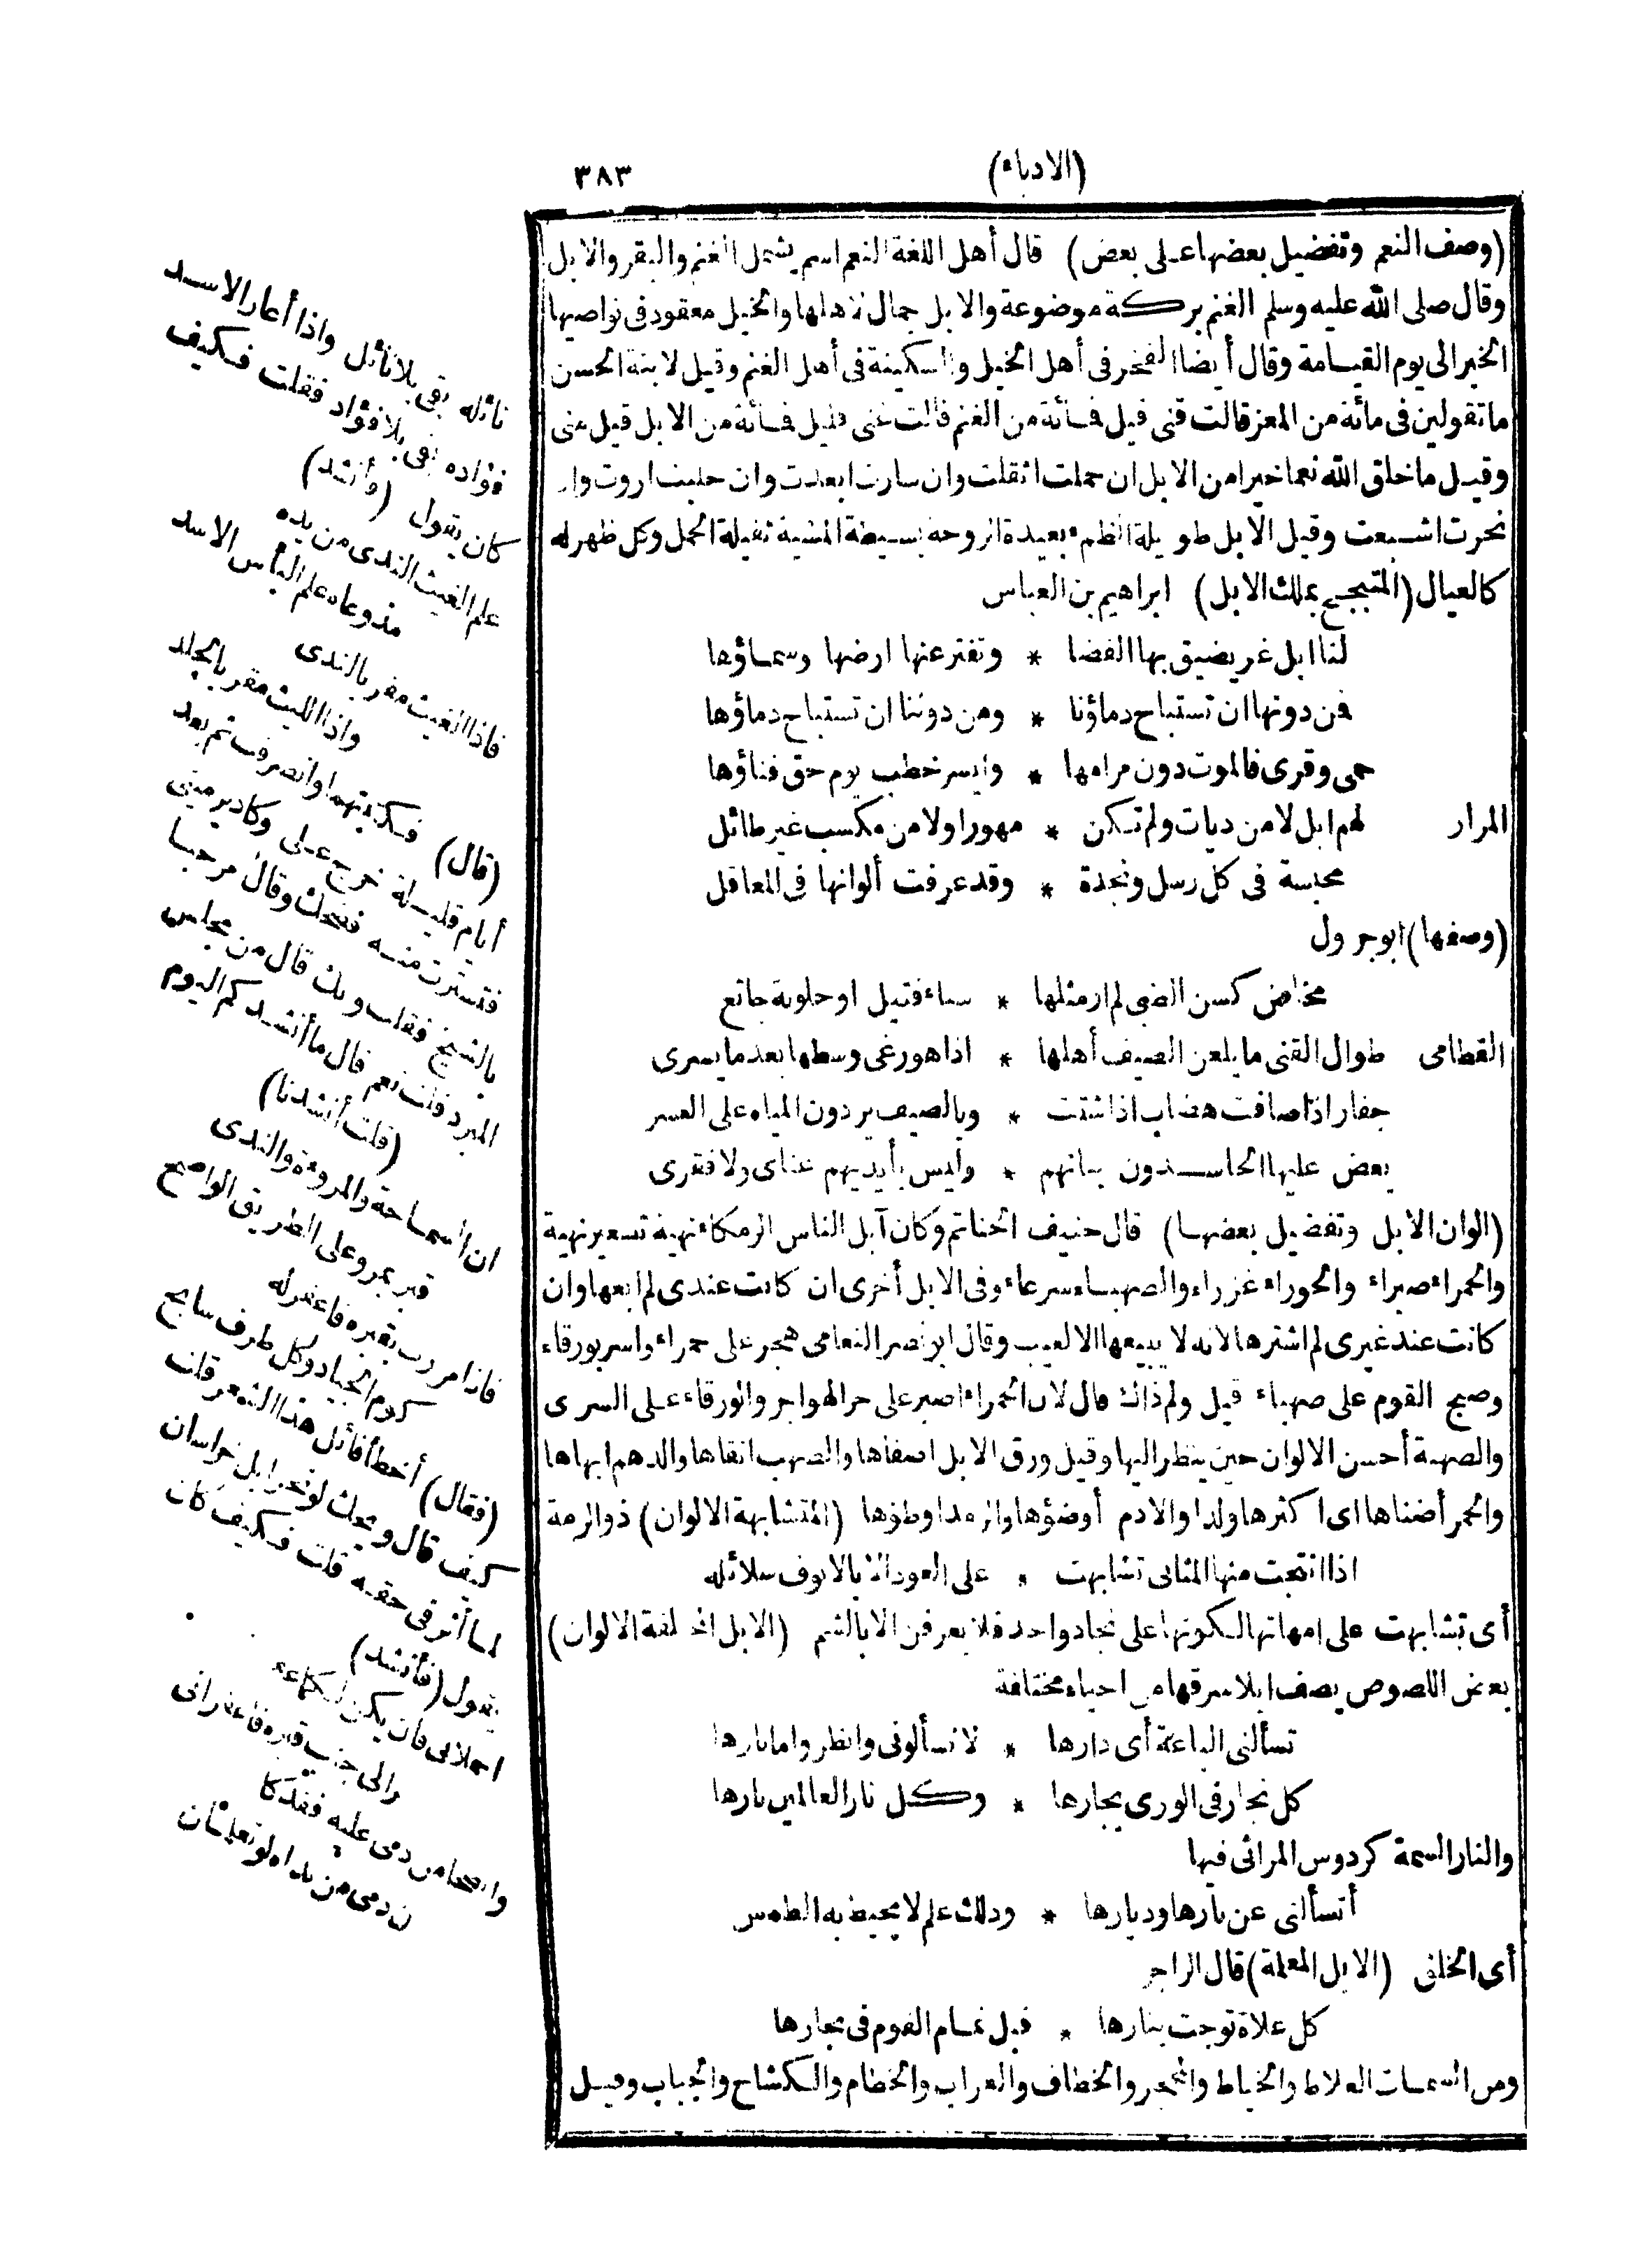 (الادباء)
٣٨٣
(وصف النعم وتفضيل بعضها على بعض) قال أهل اللغة النعم اسم يشمل الغنم والبقر والابل
وقال صلى الله عليه وسلم الغنم بركة موضوعة والابل جمال لاهلها والخيل معقود فى نواصيها
الخير الى يوم القيامة وقال أيضا الفخر فى أهل الخيل والسكينة فى أهل الغنم وقيل لابنة الحسن
ما تقولين فى مائة من المعز قالت قنى قيل فمائة من الغنم قالت غنى قيل فمائة من الابل قيل منى
وقيل ما خلق الله نعما خيرا من الابل ان حملت اثقلت وان سارت ابعدت وان حلبت اروت وان
نحرت اشبعت وقيل الابل طويلة الظمء بعيدة الروحة بسيطة المشية ثقيلة الحمل وكل ظهر له
كالعيال (المتبجح بملك الابل) ابراهيم بن العباس
لنا ابل غر يضيق بها الفضا * وتفتر عنها ارضها وسماؤها
فمن دونها ان تستباح دماؤنا * ومن دوننا ان تستباح دماؤها
حمى وقرى فالموت دون مرامها * وايسر خطب يوم حق فناؤها
المرار لهم ابل لا من ديات ولم تكن * مهورا ولا من مكسب غير طائل
محبسة فى كل رسل ونجدة * وقد عرفت ألوانها فى المعاقل
(وصفها) ابو جرول
مخاض كسن الضبى لم ار مثلها * سناء قتيل او حلوبة جائع
القطامى طوال القنى ما يلعن الضيف أهلها * اذا هو رغى وسطها بعد ما يسرى
جفار اذا صافت هضاب اذا شتت * وبالصيف يردون المياه على العسر
يعض عليها الحاسدون بنانهم * وليس بأيديهم غناى ولا فقرى
(الوان الابل وتفضيل بعضها) قال حنيف الحناتم وكان آبل الناس الرمكاء نهية تسعير نهية
والحمراء صبراء والحوراء غزراء والصهباء سرعاء وفى الابل أخرى ان كانت عندى لم ابعها وان
كانت عند غيرى لم اشترها لانه لا يبيعها الا لعيب وقال ابو نصر النعامى هجر على حمراء واسر بورقاء
وصبح القوم على صهباء قيل ولم ذاك قال لان الحمراء اصبر على حر الهواجر والورقاء على السرى
والصهبة أحسن الالوان حين ينظر اليها وقيل ورق الابل اصفاها والصهب انقاها والدهم ابهاها
والحمر أضناها اى اكثرها ولدا والادم أوضؤها والرمد اوطؤها (المتشابهة الالوان) ذو الرمة
اذا انتجت منها المثانى تشابهت * على العوذ الا بالانوف سلائله
أى تشابهت على امهاتها لكونها على نجاد واحد فلا يعرفن الا بالشم (الابل المختلفة الالوان)
بعض اللصوص يصف ابلا سرقها من احياء مختلفة
تسألنى الباعة أى دارها * لا تسألونى وانظروا ما نارها
كل نجار فى الورى نجارها * وكل نار العالمين نارها
والنار السمة كردوس المرائى فيها
أتسألنى عن نارها وديارها * وذلك علم لا يحيط به الطمس
أى الخلق (الابل المعلمة) قال الراجز
كل علاة توجت بنارها * قبل تمام القوم فى مجارها
ومن السمات العلاط والخباط والمحجر والخطاف والعراب والخطام والكشاح والجباب وقيل
نائله بقى بلا نائل واذا أعار الاسد
فؤاده بقى بلا فؤاد فقلت فكيف
كان يقول (فأنشد)
علم الغيث الندى من يده
مذ وعاه علم البأس الاسد
فاذا الغيث مقر بالندى
واذا الليث مقر بالجلد
(قال) فكتبتهما وانصرفت ثم بعد
أيام قليلة خرج على وكاد يرمينى
فتسترت منه فضحك وقال مرحبا
بالشيخ فقلت وبك قال من مجلس
المبرد قلت نعم قال ما أنشدكم اليوم
(قلت أنشدنا)
ان السماحة والمروءة والندى
قبر بمرو على الطريق الواضح
فاذا مررت بقبره فاعقر له
كوم الجياد وكل طرف سابح
(فقال) أخطأ قائل هذا الشعر قلت
كيف قال ويحك لو نحر ابل خراسان
لما أثر فى حقه قلت فكيف كان
يقول (فأنشد)
احملانى فان يكن لكما عقر
والى جنب قبره فاعقرانى
وانضحا من دمى عليه فقد كا
ن دمى من نداه لو تعلمان